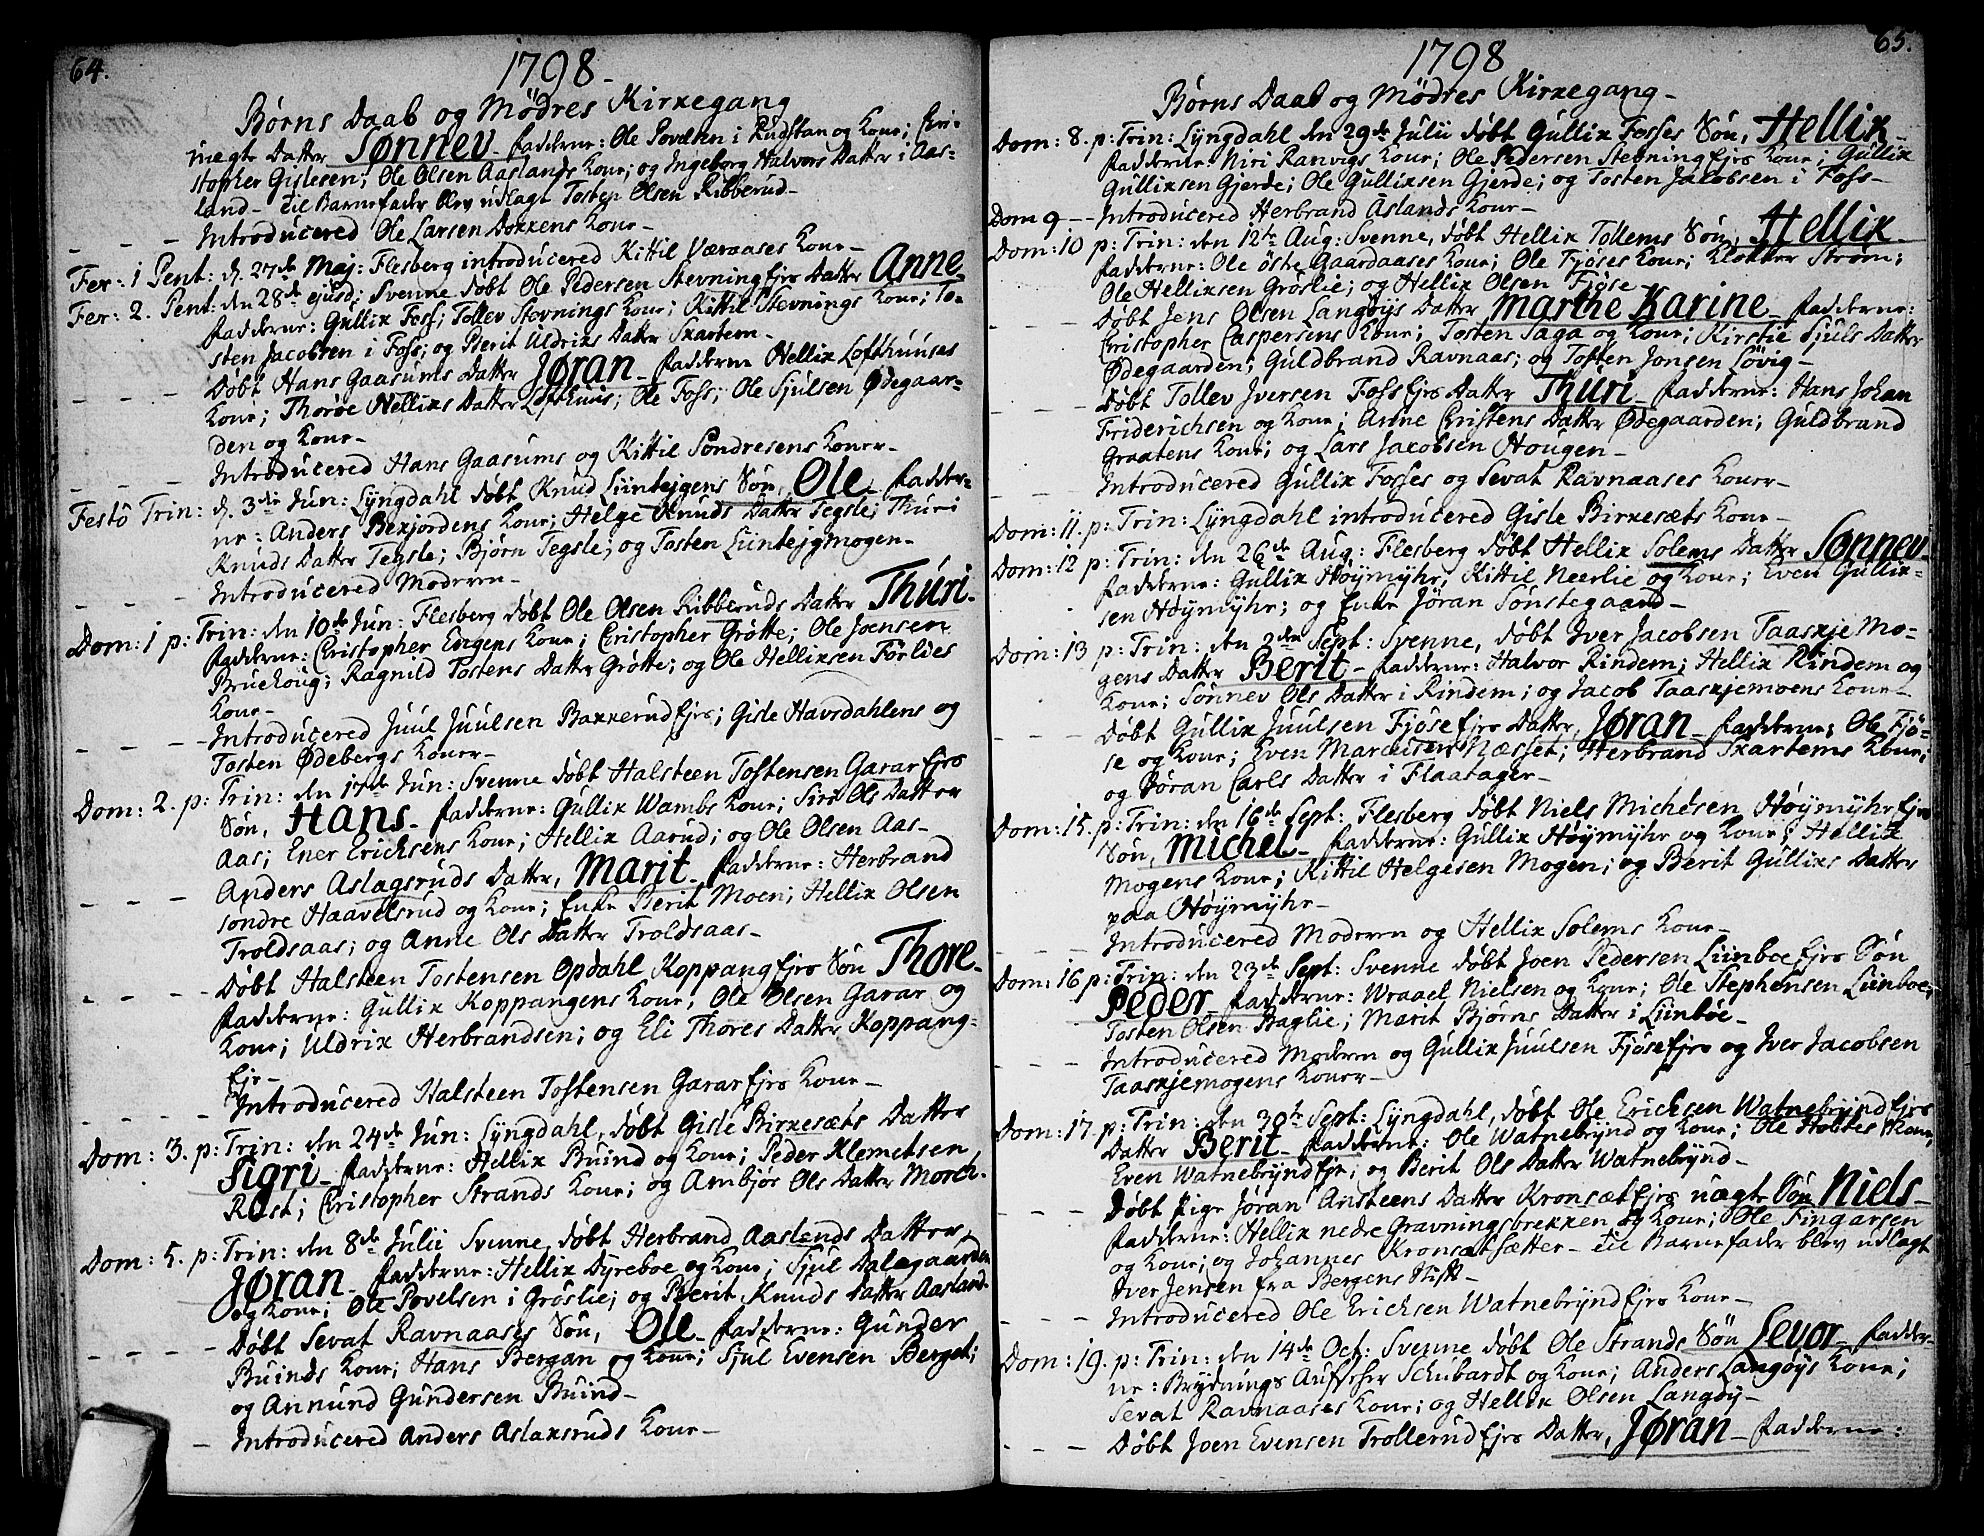 64.
1798.
Børns Daab og Mødres Kirkegang
uægte Datter Sønnev. Fadderne: Ole Povelsen i Rudstan og Kone; Chri-
stopher Gislesen; Ole Olsen Aaslands Kone; og Ingeborg Halvors Datter i Aas-
land. Til Barnefader blev udlagt Tosten Olsen Ribberud.
- - - Introducered Ole Larsen Dokkens Kone.
Fer: 1 Pent: d. 27de Maj: Flesberg introducered Kittil Væraases Kone.
Fer: 2. Pent: den 28de ejusd: Svenne døbt Ole Pedersen Stevning Ejes Datter Anne.
Fadderne: Gullik Foss; Tollev Stevnings Kone; Kittil Stevnings Kone; To-
sten Jacobsen i Foss; og Berit Uldriks Datter Skartem.
- - - Døbt Hans Gaasums Datter Jøran. Fadderne Hellik Lofthuuses
Kone; Thorøe Helliks Datter Lofthuus; Ole Foss; Ole Sjulsen Ødegaar-
den og Kone.
- - - Introducered Hans Gaasums og Kittil Sondresens Koner.
Festo Trin: d. 3die Jun: Lyngdahl døbt Knud Liintejgens Søn, Ole. Fadder-
ne: Anders Bekjordens Kone; Helge Knuds Datter Tegsle; Thuri
Knuds Datter Tegsle; Bjørn Tegsle; og Tosten Liintejgmogen.
- - - Introducered Moderen.
Dom: 1 p: Trin: den 10de Jun: Flesberg døbt Ole Olsen Ribberuds Datter Thuri.
Fadderne: Christopher Engens Kone; Christopher Grøtte; Ole Joensen
Bruehoug; Ragnild Tostens Datter Grøtte; og Ole Helliksen Førlies
Kone.
- - - Introducered Juul Juulsen Bakkerud Ejes; Gisle Havrdahlens og
Tosten Ødebergs Koner.
Dom: 2. p: Trin: den 17de Jun: Svenne døbt Halsteen Tostensen Garar Ejes
Søn, Hans. Fadderne: Gullik Wambs Kone; Siri Ols Datter
Aas; Ener Ericksens Kone; Hellik Aarud; og Ole Olsen Aas.
- - - Anders Aslagsruds Datter, Marit. Fadderne: Herbrand
søndre Haavelsrud og Kone; Enke Berit Moen; Hellik Olsen
Troldsaas; og Anne Ols Datter Troldsaas.
- - - Døbt Halsteen Tostensen Opdahl Koppang Ejes Søn Thore.
Fadderne: Gullik Koppangens Kone; Ole Olsen Garar og
Kone; Uldrik Herbrandsen; og Eli Thores Datter Koppang-
Eje.
- - - Introducered Halsteen Tostensen Garar Ejes Kone.
Dom: 3. p: Trin: den 24de Jun: Lyngdahl, døbt Gisle Birkesæts Datter
Sigri. Fadderne: Hellik Buind og Kone; Peder Klemetsen
Rust; Christopher Strands Kone; og Ambjør Ols Datter Morch.
Dom: 5. p: Trin: den 8de Julii Svenne, døbt Herbrand Aaslands Datter,
Jøran. Fadderne: Hellik Dyreboe og Kone; Sjul Dalagaarden
og Kone; Ole Povelsen i Grøslie; og Berit Knuds Datter Aasland.
- - - Døbt Sevat Ravnaases Søn, Ole. Fadderne: Gunder
Buinds Kone; Hans Bergan og Kone; Sjul Evensen Berget;
og Annund Gundersen Buind.
- Introducered Anders Aslaksruds Kone.
65.
1798
Børns Daab og Mødres Kirkegang.
Dom: 8. p: Trin: Lyngdahl den 29de Julii døbt Gullik Fosses Søn, Hellik.
Fadderne Niri Ranvigs Kone; Ole Pedersen Stevning Ejes Kone; Gullik
Gulliksen Gjerde; Ole Gulliksen Gjerde; og Tosten Jacobsen i Foss.
Dom 9 - - Introducered Herbrand Aslands Kone.
Dom: 10 p: Trin: den 12te Aug: Svenne, døbt Hellik Tollems Søn, Hellik.
Fadderne: Ole østre Gaardaases Kone; Ole Fjøses Kone; Klokker Strøm;
Ole Helliksen Grøslie; og Hellik Olsen Fjøse.
- - - Døbt Jens Olsen Langøys Datter Marthe Karine. Fadderne:
Christopher Caspersens Kone; Tosten Saga og Kone; Kirstie Sjuls Datter
Ødegaarden; Guldbrand Ravnaas; og Tosten Jonsen Løvig.
- - - Døbt Tollev Iversen Foss Ejes Datter Thuri. Fadderne: Hans Johan
Friderichsen og Kone; Anne Christens Datter Ødegaarden; Guldbrand
Graatens Kone; og Lars Jacobsen Hougen.
- - - Introducered Gullik Fosses og Sevat Ravnaases Koner.
Dom: 11. p: Trin: Lyngdahl introducered Gisle Birkesæts Kone.
Dom: 12 p: Trin: den 26de Aug: Flesberg døbt Hellik Solems Datter Sønnev.
Fadderne: Gullik Høymyhr; Kittil Neerlie og Kone; Even Gullik-
sen Høymyhr; og Enke Jøran Sønstegaard.
Dom: 13 p: Trin: den 2den Sept: Svenne, døbt Iver Jacobsen Taaskje Mo-
gens Datter Berit. Fadderne: Halvor Rindem; Hellik Rindem og
Kone; Sønnev Ols Datter i Rindem; og Jacob Taaskjemoens Kone.
- - - Døbt Gullik Juulsen Fjøse Ejes Datter, Jøran. Fadderne: Ole Fjø-
se og Kone; Even Næsset; Herbrand Skartems Kone;
og Gøran Carls Datter i Flaatager.
Dom: 15. p: Trin: den 16de Sept: Flesberg døbt Niels Michelsen Høymyhr Ejes
Søn, Michel. Fadderne: Gullik Høymyhr og Kone; Hellik
Mogens Kone; Kittil Helgesen Mogen; og Berit Gulliks Datter
paa Høymyhr.
- - - Introducered Moderen og Hellik Solems Kone.
Dom: 16 p: Trin: den 23de Sept: Svenne døbt Joen Pedersen Liinboe Ejes Søn
Peder. Fadderne: Wraael Nielsen og Kone; Ole Stephensen Liinboe;
Tosten Olsen Baglie; Marit Bjørns Datter i Liinbøe.
- - - Introducered Moderen og Gullik Juulsen Fjøse Ejes og Iver Jacobsen
Taaskjemogens Koner.
Dom: 17. p: Trin: den 30te Sept: Lyngdahl, døbt Ole Ericksen Watnebrynd Ejes
Datter Berit. Fadderne: Ole Watnebrynd og Kone; Ole Holtes Kone;
Even Watnebrynd Eje; og Berit Ols Datter Watnebrynd.
- - - Døbt Pige Jøran Ansteens Datter Kronsæt Ejes uægte Søn Niels.
Fadderne: Hellik nedre Gravningsbrekken og Kone; Ole Fingarsen
og Kone; og Johannes Kronsæt Sætter. Til Barnefader blev udlagt
Iver Jensen fra Bergens Stift.
- - - Introducered Ole Ericksen Watnebrynd Ejes Kone.
Dom: 19. p: Trin: den 14de Oct: Svenne døbt Ole Strands Søn Levor. Fadder-
ne: Brydnings Aufseher Schubardt og Kone; Anders Langøys Kone;
Sevat Ravnaases Kone; og Hellik Olsen Langøy.
- - - Døbt Joen Evensen Trollerud Ejes Datter, Jøran. Fadderne: